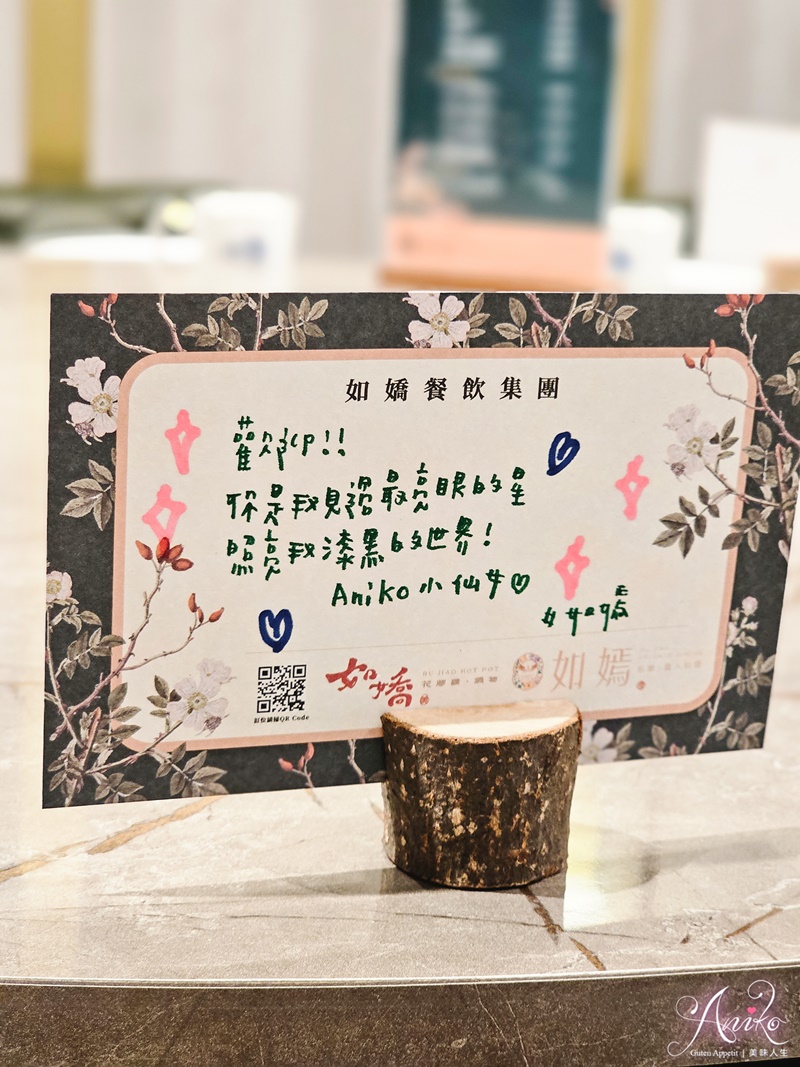 如嬌餐飲集團
歡迎!!
你是我見過最亮眼的星
照亮我漆黑的世界!
Aniko小仙女♡
訂位請掃QR Code
如嬌
RU JIAO HOT POT
如嫣
Aniko
Guten Appetit | 美味人生